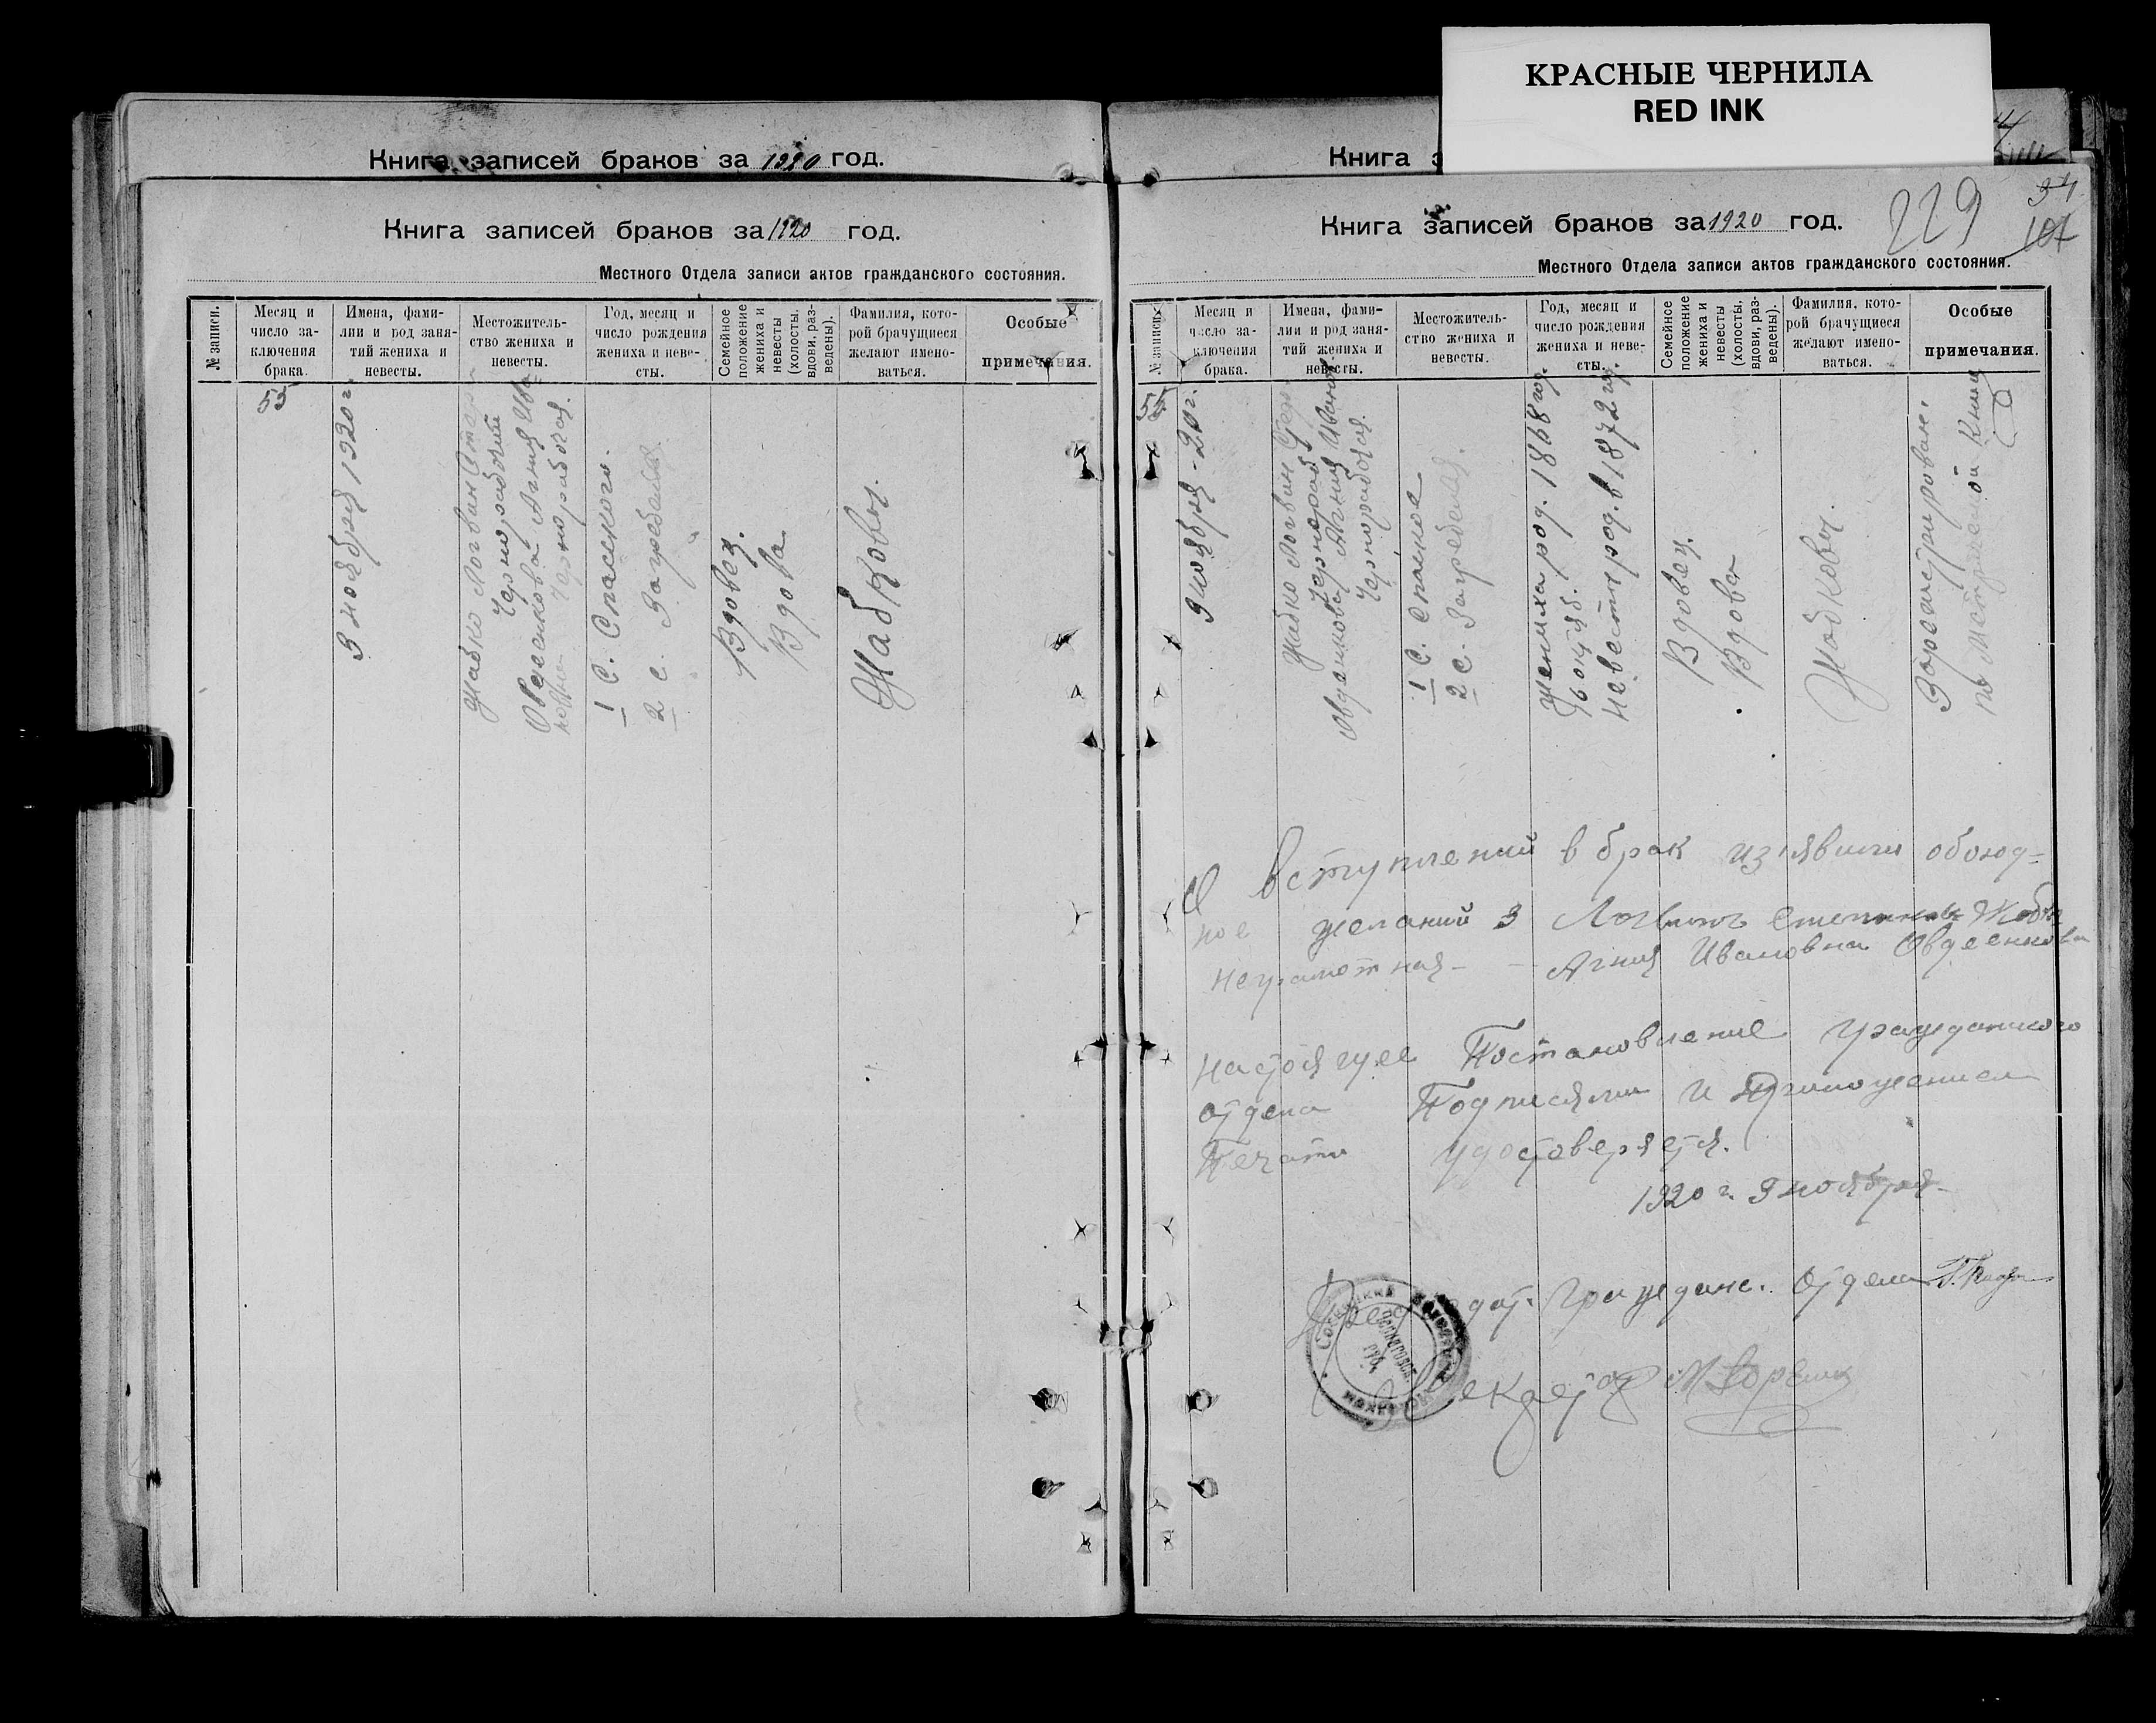 КРАСНЫЕ ЧЕРНИЛА
RED INK
Книга записей браков за 1920 год.
Книга
Книга записей браков за 1920 год.
Местного Отдела записи актов гражданского состояния.
№ записи.
Месяц и число за-
ключения
брака.
Имена, фами-
лии и род заня-
тий жениха и
невесты.
Местожитель-
ство жениха и
невесты.
Год, месяц и
число рождения
жениха и неве-
сты.
Семейное
положение
жениха и
невесты
(холосты,
вдовы, раз-
ведены).
Фамилия, кото-
рой брачущиеся
желают имено-
ваться.
Особые
примечания.
55
9 ноября 1920 г.
Жабко Логвин
Чернорабочий
Агния
Чернорабочая.
1 С. Спасского.
2 с. Загребелля
Вдовец.
Вдова
Жабковы.
229
34
107
Книга записей браков за 1920 год.
Местного Отдела записи актов гражданского состояния.
№ записи.
Месяц и
число за-
ключения
брака.
Имена, фами-
лии и род заня-
тий жениха и
невесты.
Местожитель-
ство жениха и
невесты.
Год, месяц и
число рождения
жениха и неве-
сты.
Семейное
положение
жениха и
невесты
(холосты,
вдовы, раз-
ведены).
Фамилия, кото-
рой брачущиеся
желают имено-
ваться.
Особые
примечания.
55
9 ноября - 20 г.
Жабко Логвин
Чернораб
Агния Иванов
Чернорабочая.
1 С. Спасское
2 С. Загребелля.
Жениха род. 1868 год.
Невесты род. в 1872 год.
Вдовец.
Вдова
Жабковы.
Зарегистрирован.
по Метрической Книги
О вступлении в брак изъявили обоюд=
ное желаний 3 Логвин Степанов Жабко
Неграмотная - - Агния Ивановна Овдеенкова
Настоящее Постановление гражданского
отдела Подписями и приложением
Печати удостоверяется.
1920 г. 9 ноября
Председат. Гражданс. Отдела
Секретар